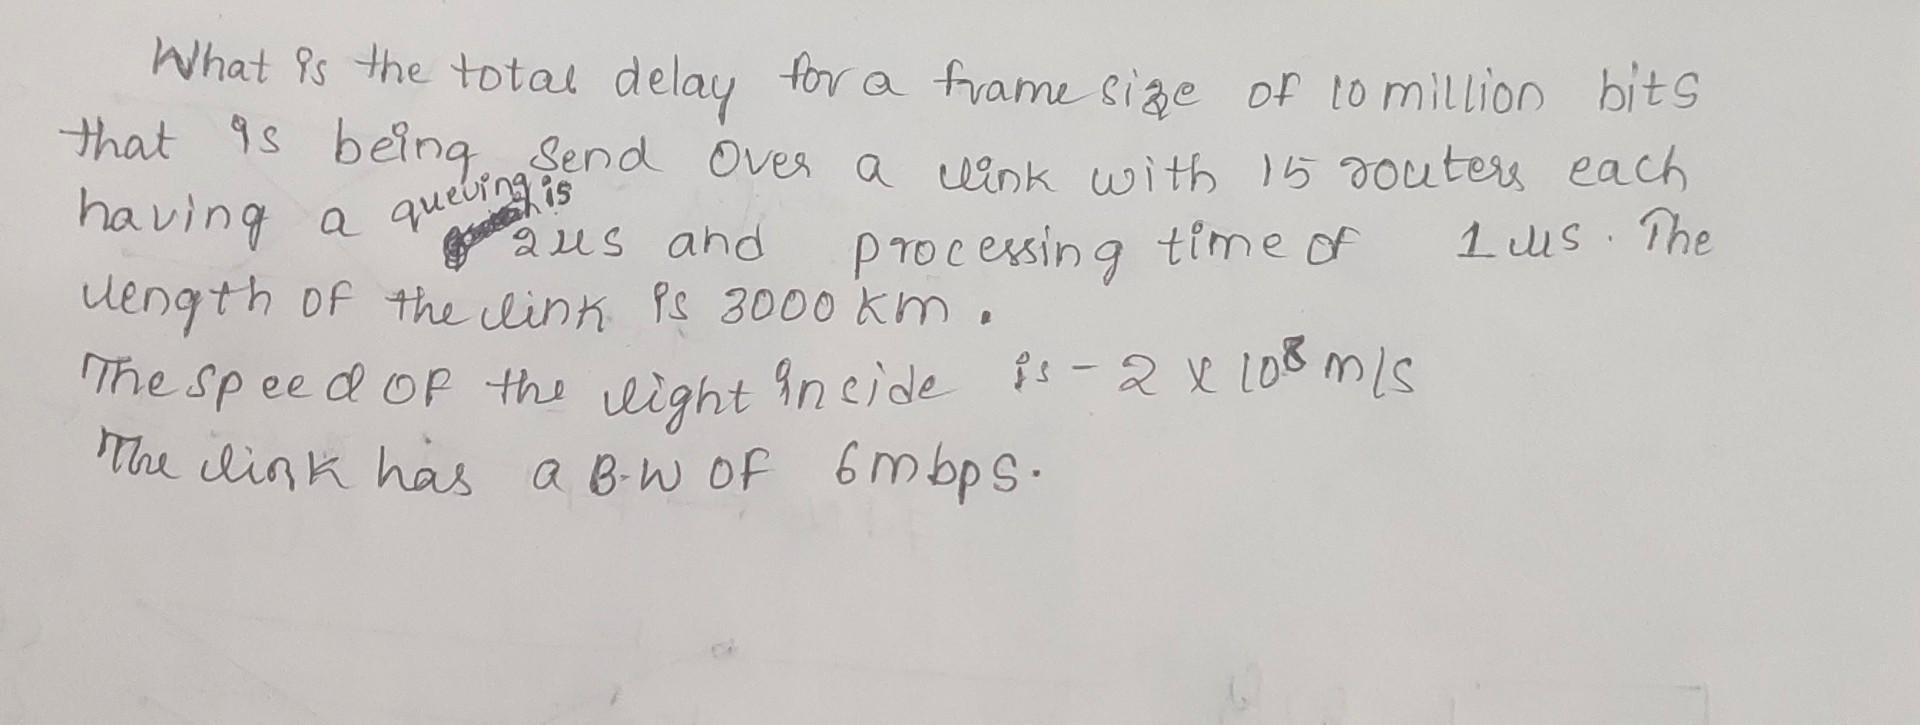 What is the total delay for a frame size of 10 million bits
that is being send over a link with 15 routers each
having a queuing is 2us and processing time of 1us. The
length of the link is 3000 km.
The speed of the light inside is - 2 x 10⁸ m/s
The link has a B.W of 6mbps.